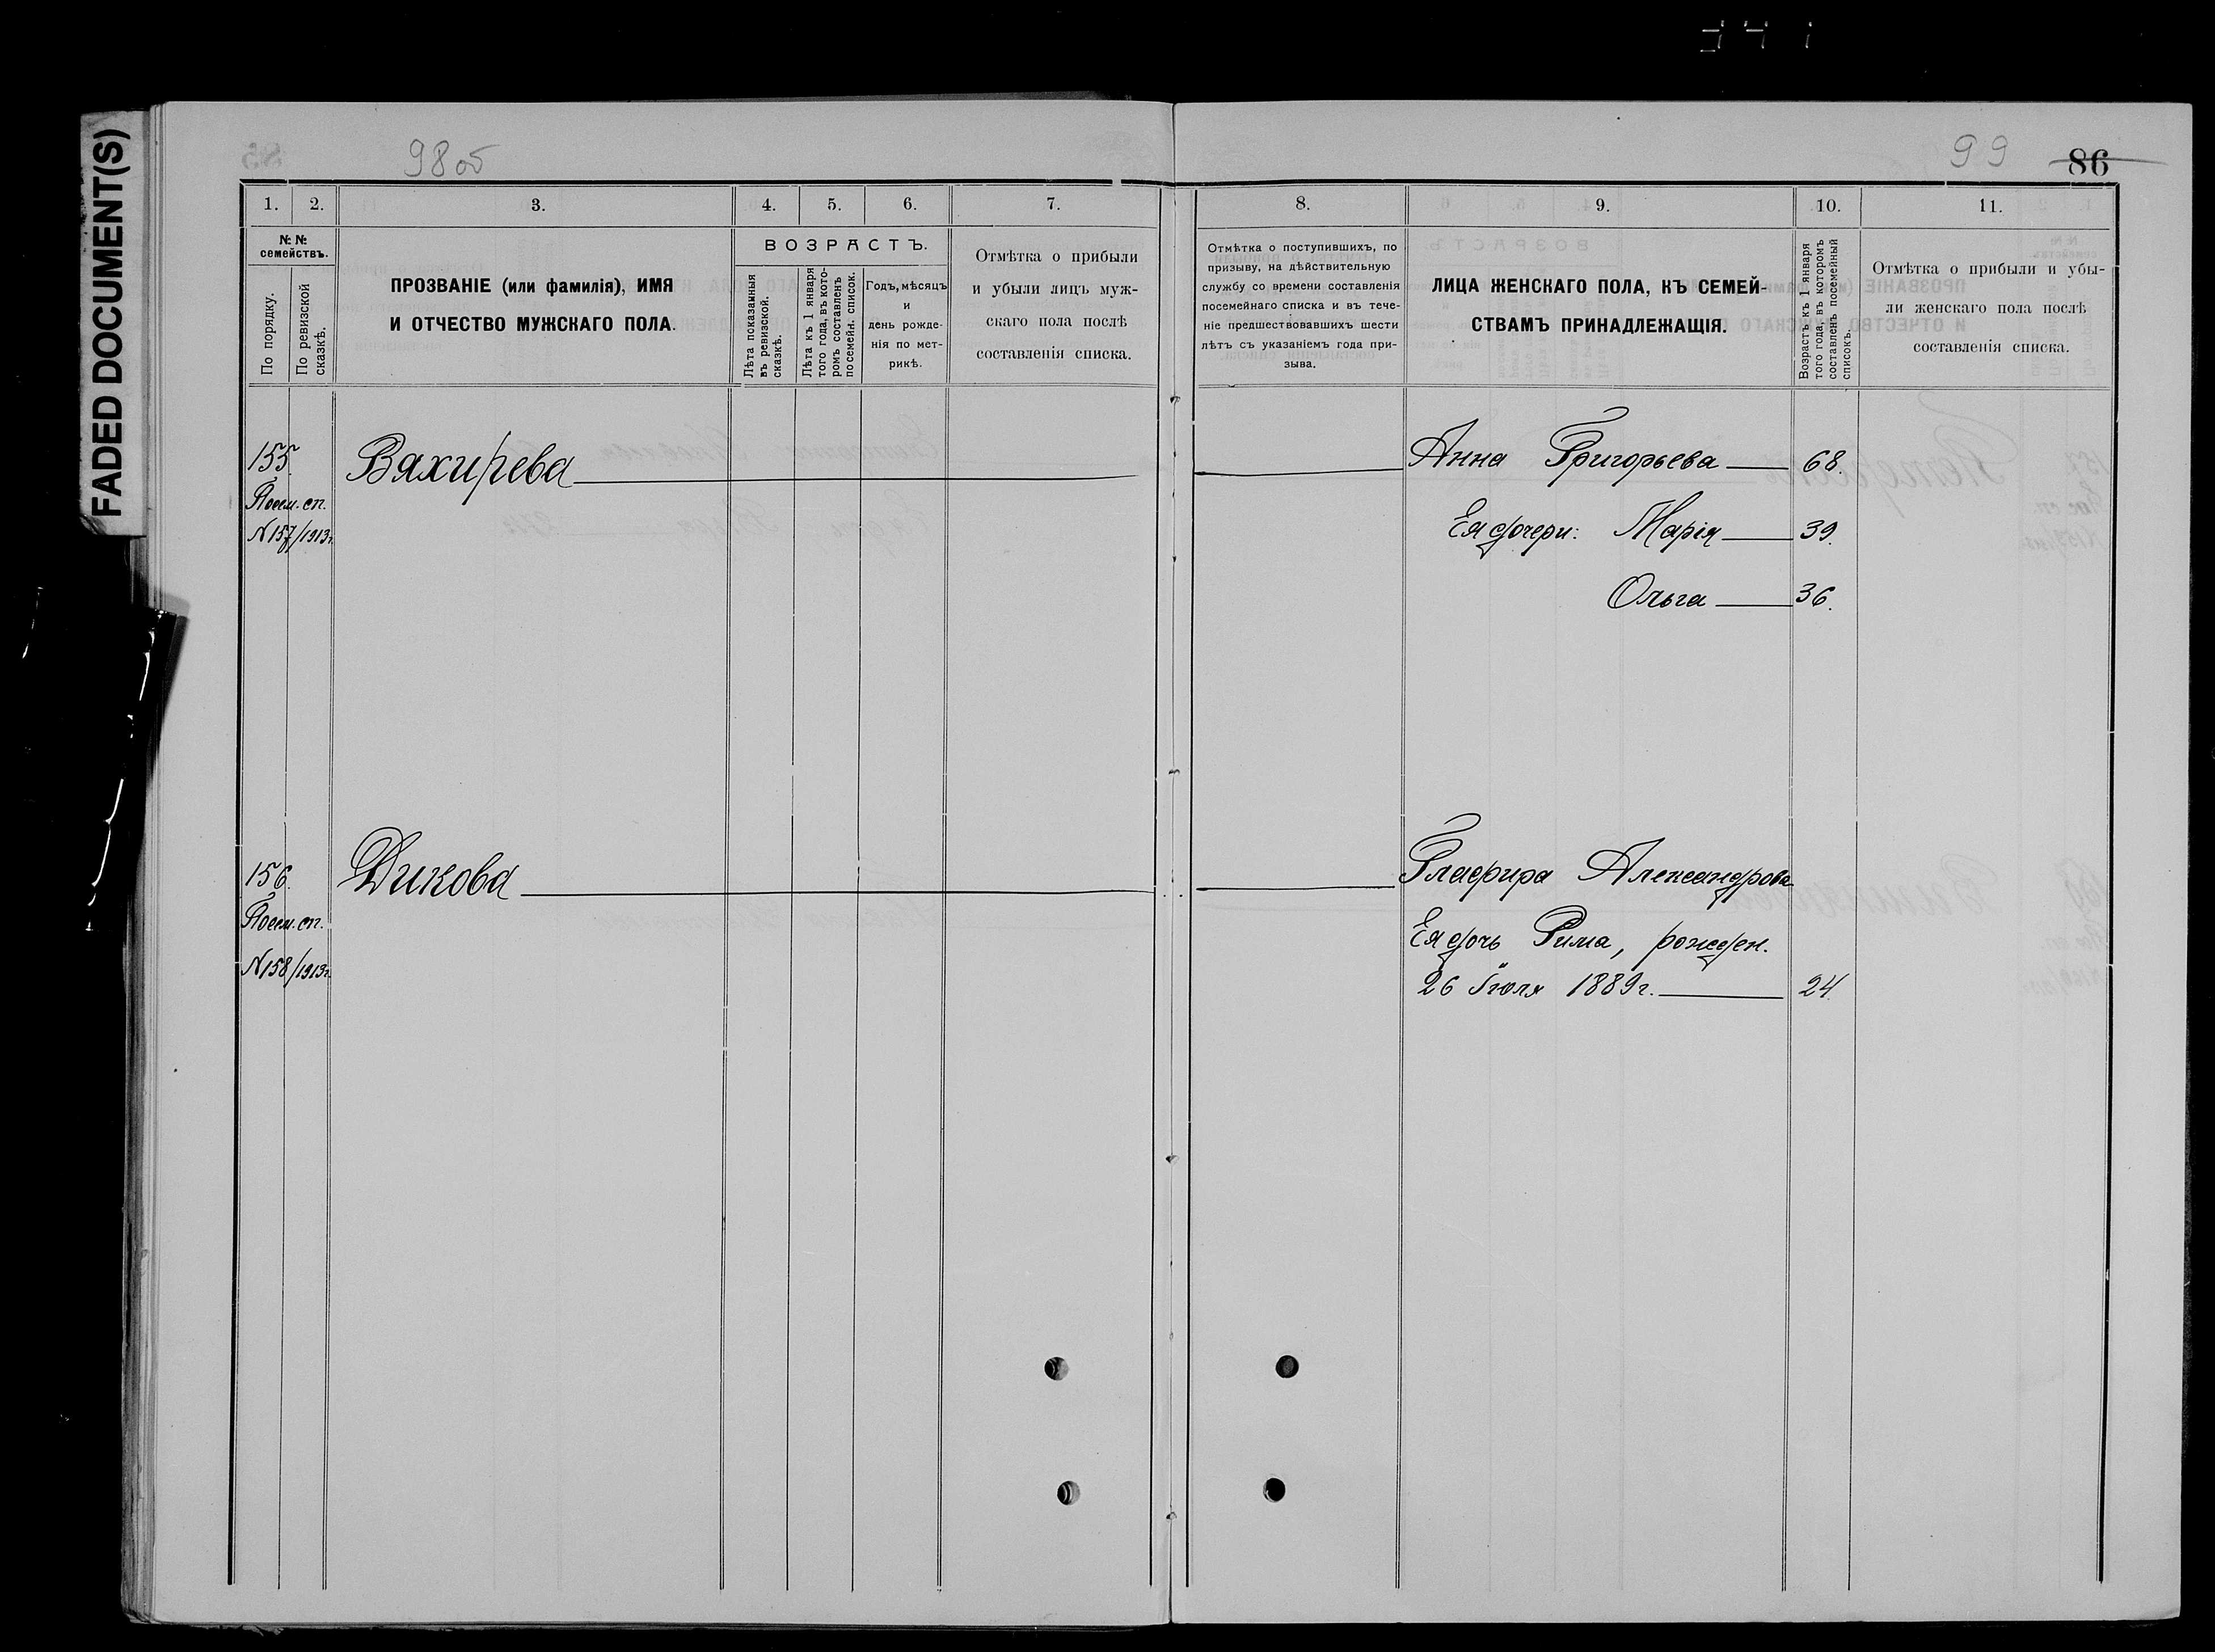 FADED DOCUMENT(S)
98 об
99 86
1. 2. 3. 4. 5. 6. 7.
№ №
семействъ.
По порядку.
По ревизской
сказкѣ.
ПРОЗВАНІЕ (или фамилія), ИМЯ
И ОТЧЕСТВО МУЖСКАГО ПОЛА.
ВОЗРАСТЪ.
Лѣта показанныя
въ ревизской
сказкѣ.
Лѣта къ 1 января
того года, въ кото-
ромъ составленъ
посемейн. список.
Годъ, мѣсяцъ
и
день рожде-
нія по мет-
рикѣ.
Отмѣтка о прибыли
и убыли лицъ муж-
скаго пола послѣ
составленія списка.
155
Посем. сп.
N 157/1913г.
Вахирева
156.
Посем. сп.
N 158/1913г.
Дикова
8. 9. 10. 11.
Отмѣтка о поступившихъ, по
призыву, на дѣйствительную
службу со времени составленія
посемейнаго списка и въ тече-
ніе предшествовавшихъ шести
лѣтъ съ указаніемъ года при-
зыва.
ЛИЦА ЖЕНСКАГО ПОЛА, КЪ СЕМЕЙ-
СТВАМЪ ПРИНАДЛЕЖАЩІЯ.
Возрастъ къ 1 января
того года, въ которомъ
составленъ посемейный
списокъ.
Отмѣтка о прибыли и убы-
ли женскаго пола послѣ
составленія списка.
Анна Григорьева 68.
Ея дочери: Марія 39.
Ольга 36.
Глафира Александрова
Ея дочь Рима, рожден.
26 Іюля 1889г. 24.